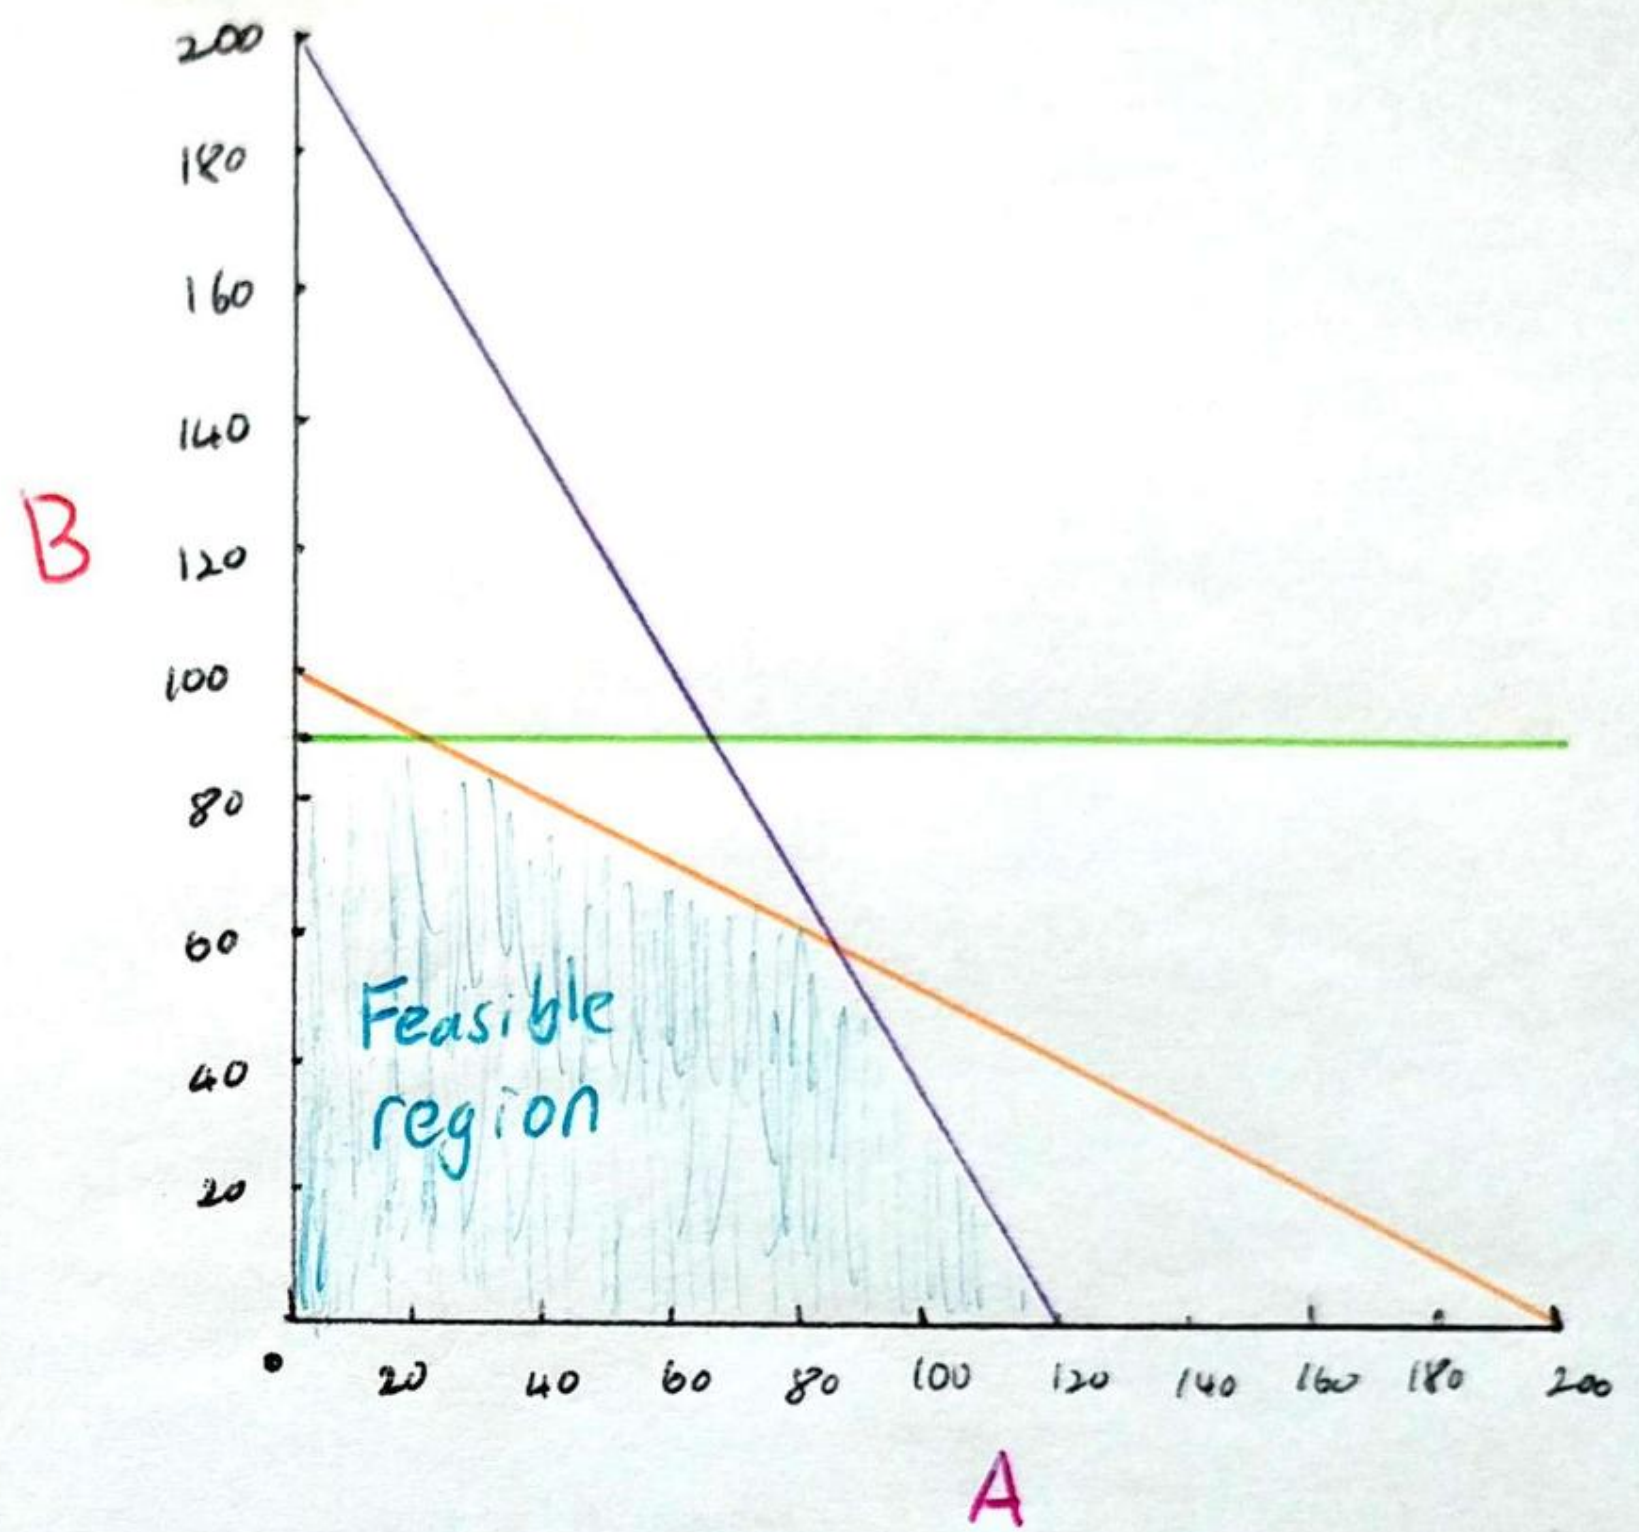 200
180
160
140
B
120
100
80
60
Feasible
40
region
20
0
20 40 60 80 100 120 140 160 180 200
A